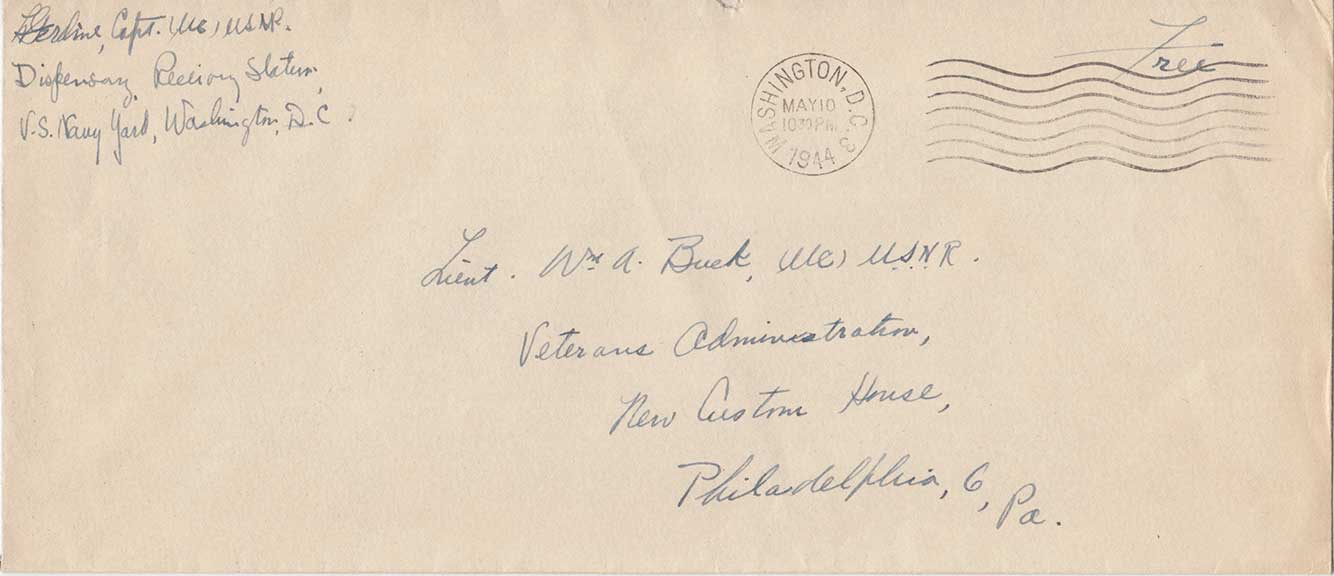 Capt. (MC) USNR.
Dispensary, Receiving Station,
U.S. Navy Yard, Washington, D.C.
WASHINGTON, D.C. 3
MAY 10
10 30 PM
1944
Free
Lieut. Wm A. Buck, (MC) U.S.N.R.
Veterans Administration,
New Custom House,
Philadelphia, 6,
Pa.